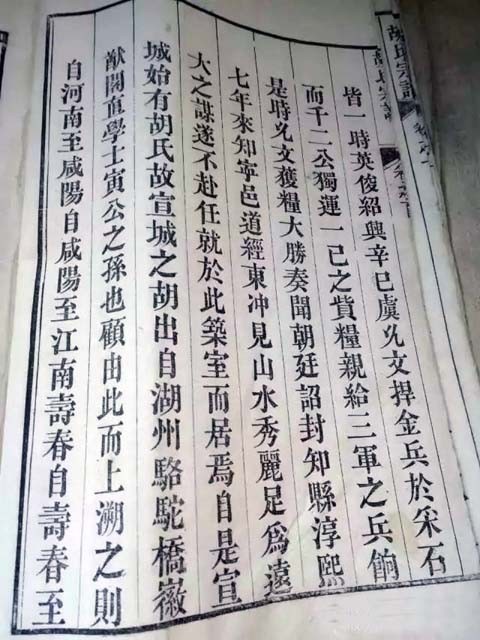 胡氏宗譜
皆一時英俊紹興辛巳虞允文捍金兵於采石
而千二公獨運一己之貲糧親給三軍之兵餉
是時允文獲糧大勝奏聞朝廷詔封知縣淳熙
七年來知寧邑道經東冲見山水秀麗足為遠
大之謀遂不赴任就於此築室而居焉自是宣
城始有胡氏故宣城之胡出自湖州駱駝橋徽
猷閣直學士寅公之孫也顧由此而上溯之則
自河南至咸陽自咸陽至江南壽春自壽春至